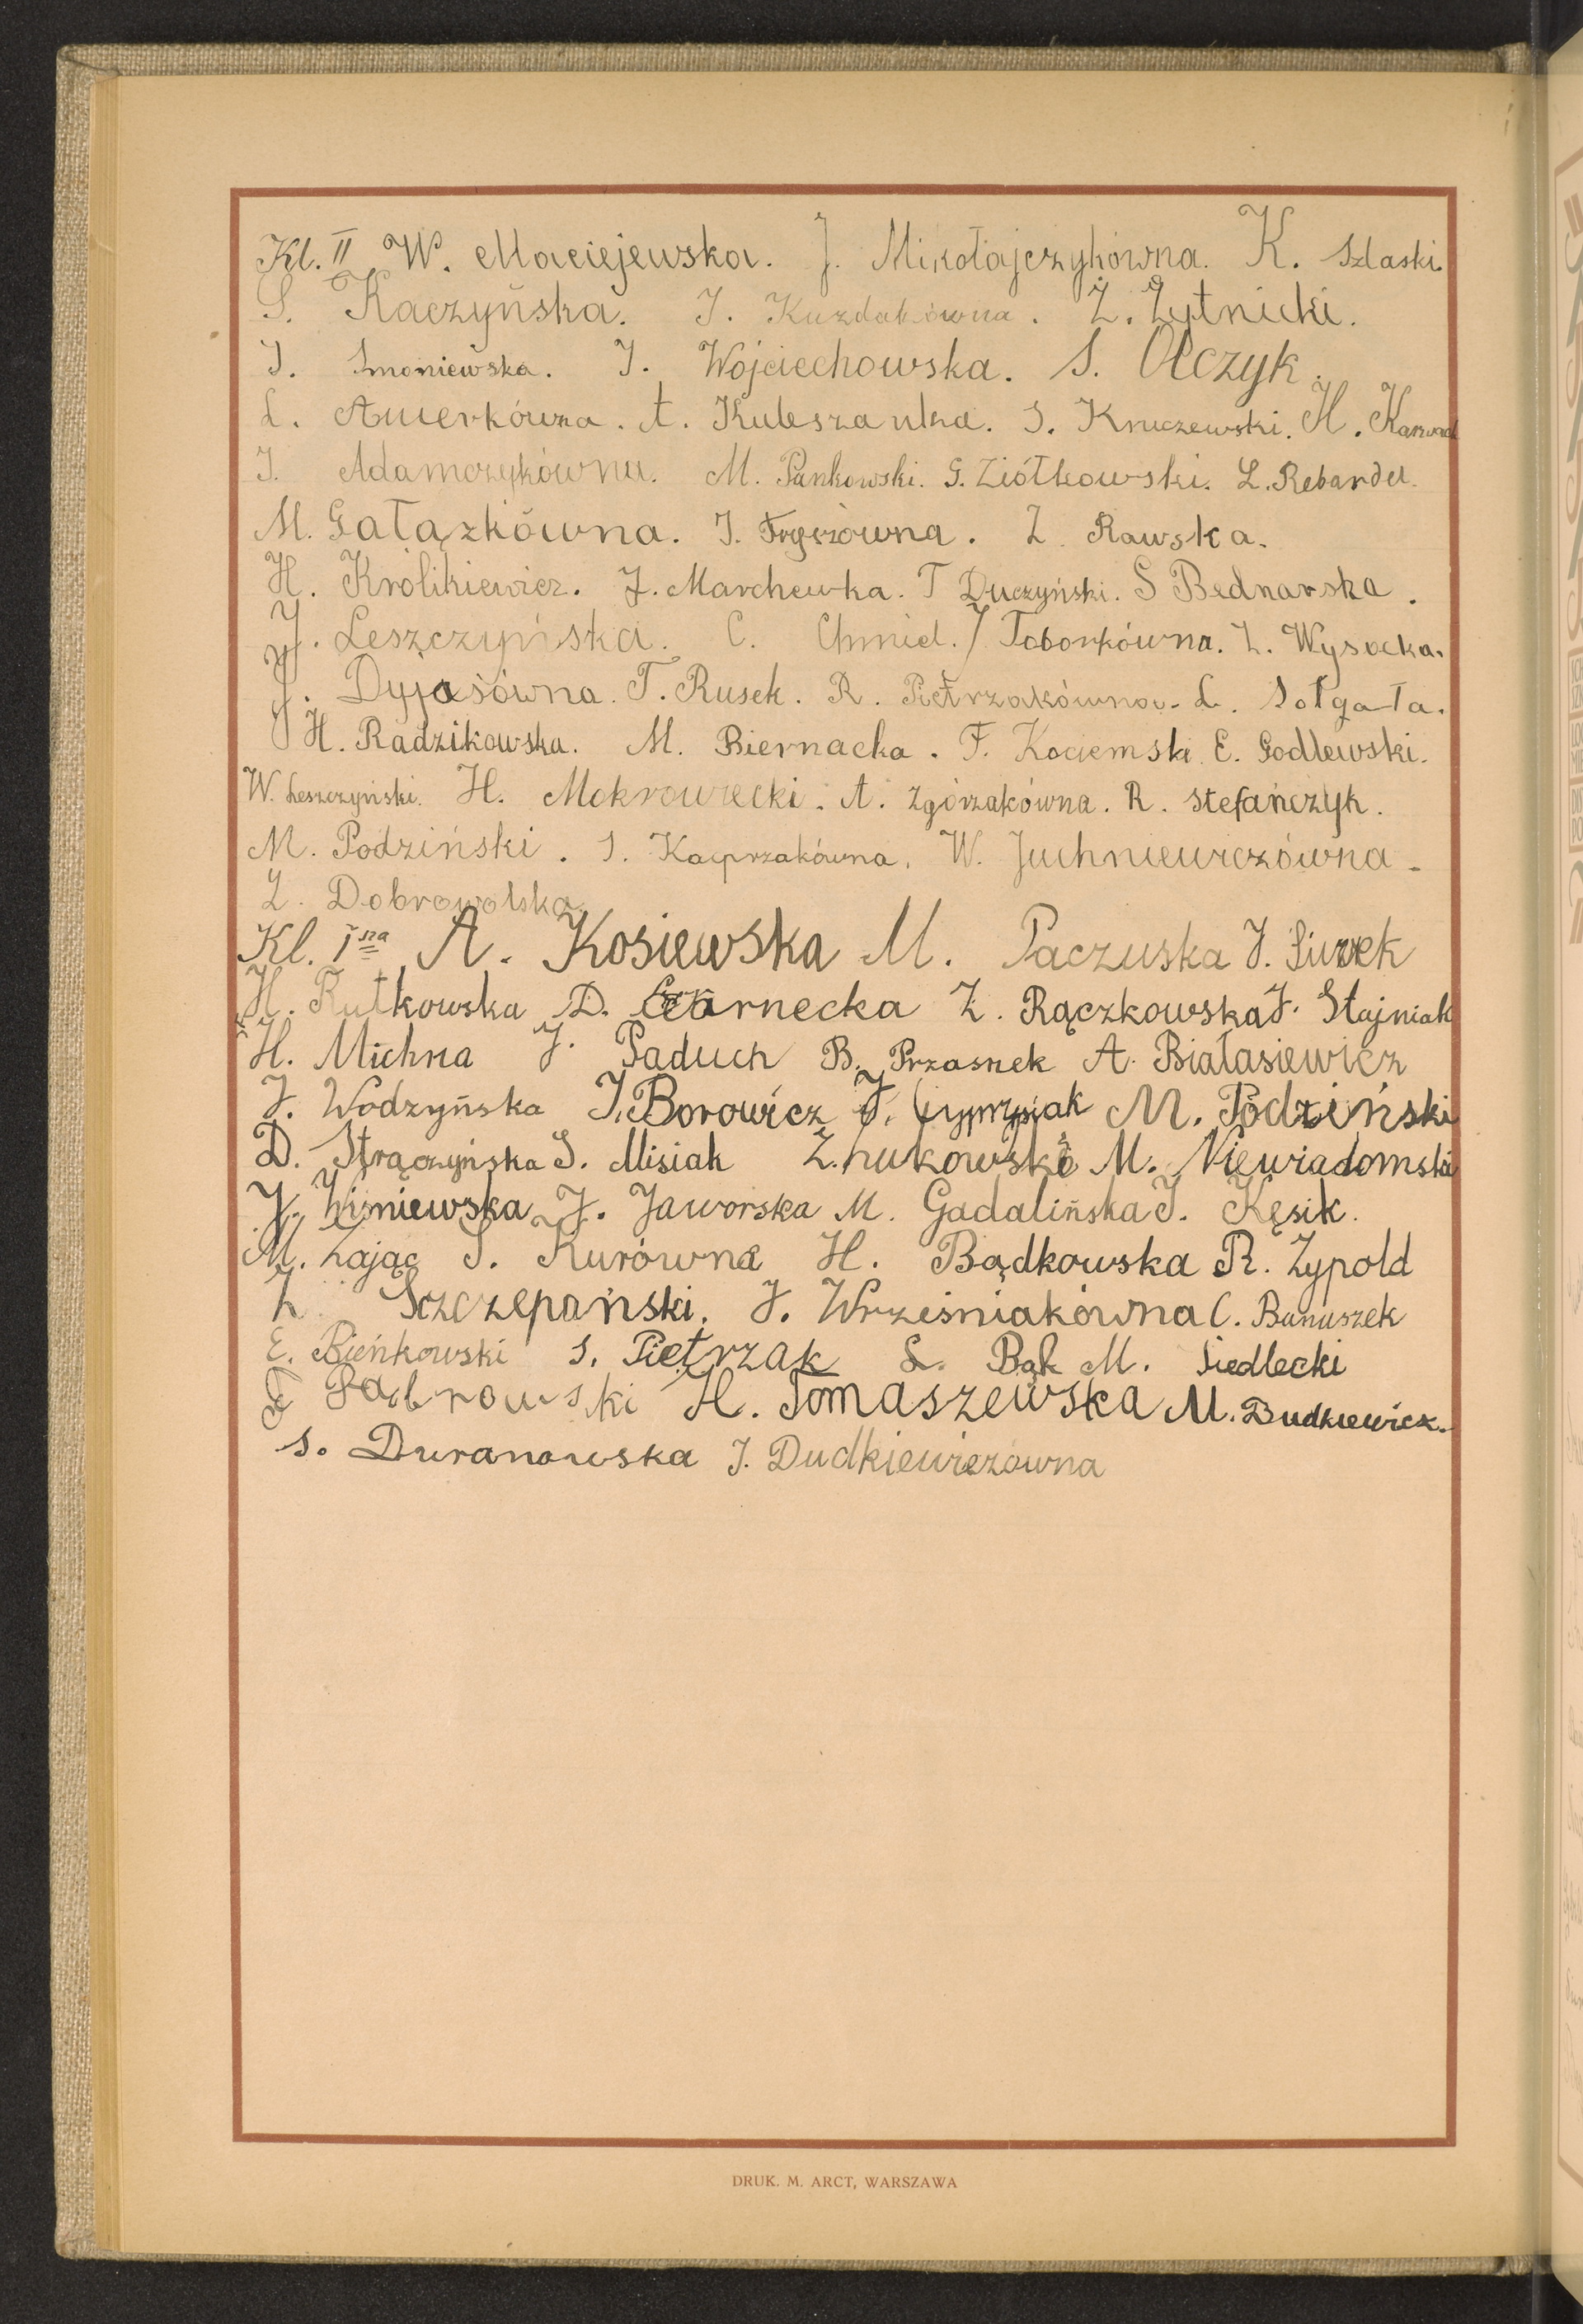 Kl. II W. Maciejewska. J. Mikołajczykówna. K. Szlaski.
S. Kaczyńska. J. Kuzdakówna. Z. Żytnicki.
J. Smoniewska. J. Wojciechowska. S. Olczyk.
L. A. Kuleszanka. S. Kruczewski. H.
J. Adamczykówna. M. Pankowski. G. Ziółkowski. L. Rebandel.
M. Gałązkówna. J. Z. Rawska.
H. Królikiewicz. J. Marchewka. T Duczyński. S Bednarska.
J. Leszczyńska. C. Chmiel. J Toborkówna. Z. Wysocka.
J. Dyjasówna. T. Rusek. R. Pietrzakówna. L. Sołgała.
H. Radzikowska. M. Biernacka. F. Kociemski. E. Godlewski.
W. Leszczyński. H. Mokrowiecki. A. Zgórzakówna. R. Stefańczyk.
M. Podziński. S. Kacprzakówna. W. Juchniewiczówna.
Z. Dobrowolska
Kl. I sza A. Kosiewska M. Paczuska J. Siurek
H. Rutkowska D. Czarnecka Z. Rączkowska J. Stajniak
H. Michna J. Paduch B. Przasnek A. Białasiewicz
J. Wodzyńska J. Borowicz J. Cyprysiak M. Podziński
D. Strączyńska S. Misiak Z. M. Niewiadomski
J. Wiśniewska J. Jaworska M. Gadalińska J. Kęsik.
M. Zając S. Kurówna H. Bądkowska R. Zypold
Z Szczepański. J. Wrześniakówna C. Banuszek
E. Bieńkowski S. Pietrzak L. Bąk M. Siedlecki
H. Tomaszewska M. Budkiewicz.
S. Duranowska J. Dudkiewiczówna
DRUK. M. ARCT, WARSZAWA